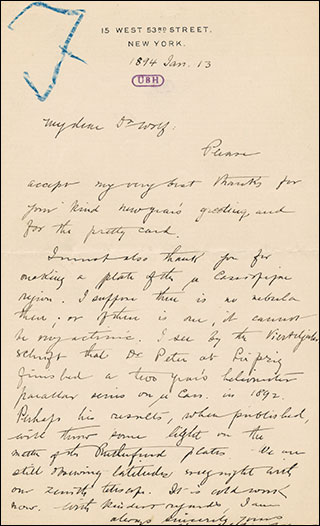 F
15 WEST 53RD STREET,
NEW YORK.
1894 Jan. 13
UBH
My dear Dr Wolf:
Please
accept my very best thanks for
your kind new year's greeting, and
for the pretty card.
I must also thank you for
making a plate of the μ Cassiopeiae
region. I suppose there is no nebula
there; or if there is one, it cannot
be very actinic. I see by the Vierteljahrs-
schrift that Dr. Peter at Leipzig
finished a two year's heliometer
parallax series on μ Cass. in 1892.
Perhaps his results, when published,
will throw some light on the
matter of the Rutherfurd plates. We are
still observing latitudes every night with
our zenith telescope. It is cold work
now. With kindest regards I am
always sincerely yours